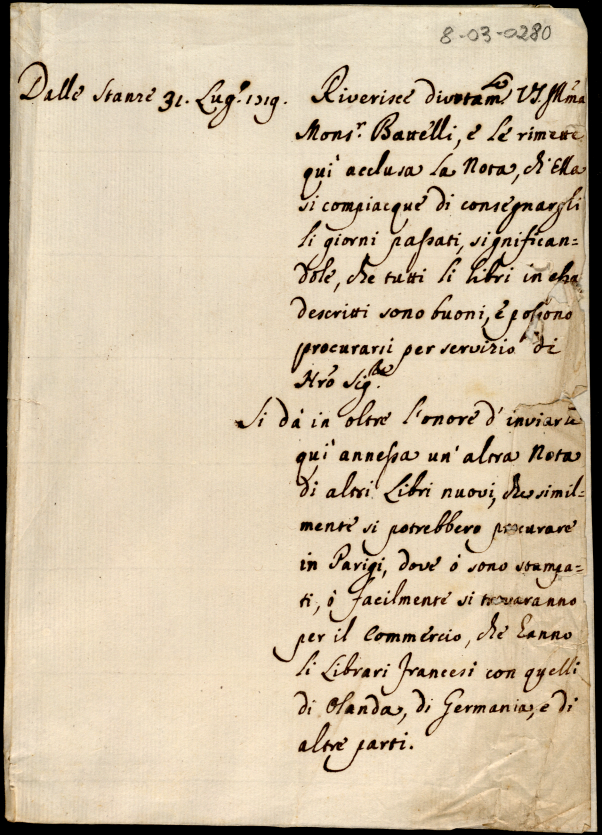 8-03-0280
Dalle Stanze 31. Lug.º 1719.
Riverisce divotam.te VS. Ill'ma
Mons.r Battelli, e le rimette
qui acclusa la Nota, ch'Ella
si compiacque di consegnargli
li giorni passati, significan=
dole, che tutti li libri in essa
descritti sono buoni, e possono
procurarsi per servizio di
Nr'o Sig.re
Si dà in oltre l'onore d'inviarle
qui annessa un'altra Nota
di altri Libri nuovi, che simil=
mente si potrebbero procurare
in Parigi, dove ò sono stampa=
ti, ò facilmente si trovaranno
per il Commercio, che hanno
li Librari francesi con quelli
di Olanda, di Germania, e di
altre parti.